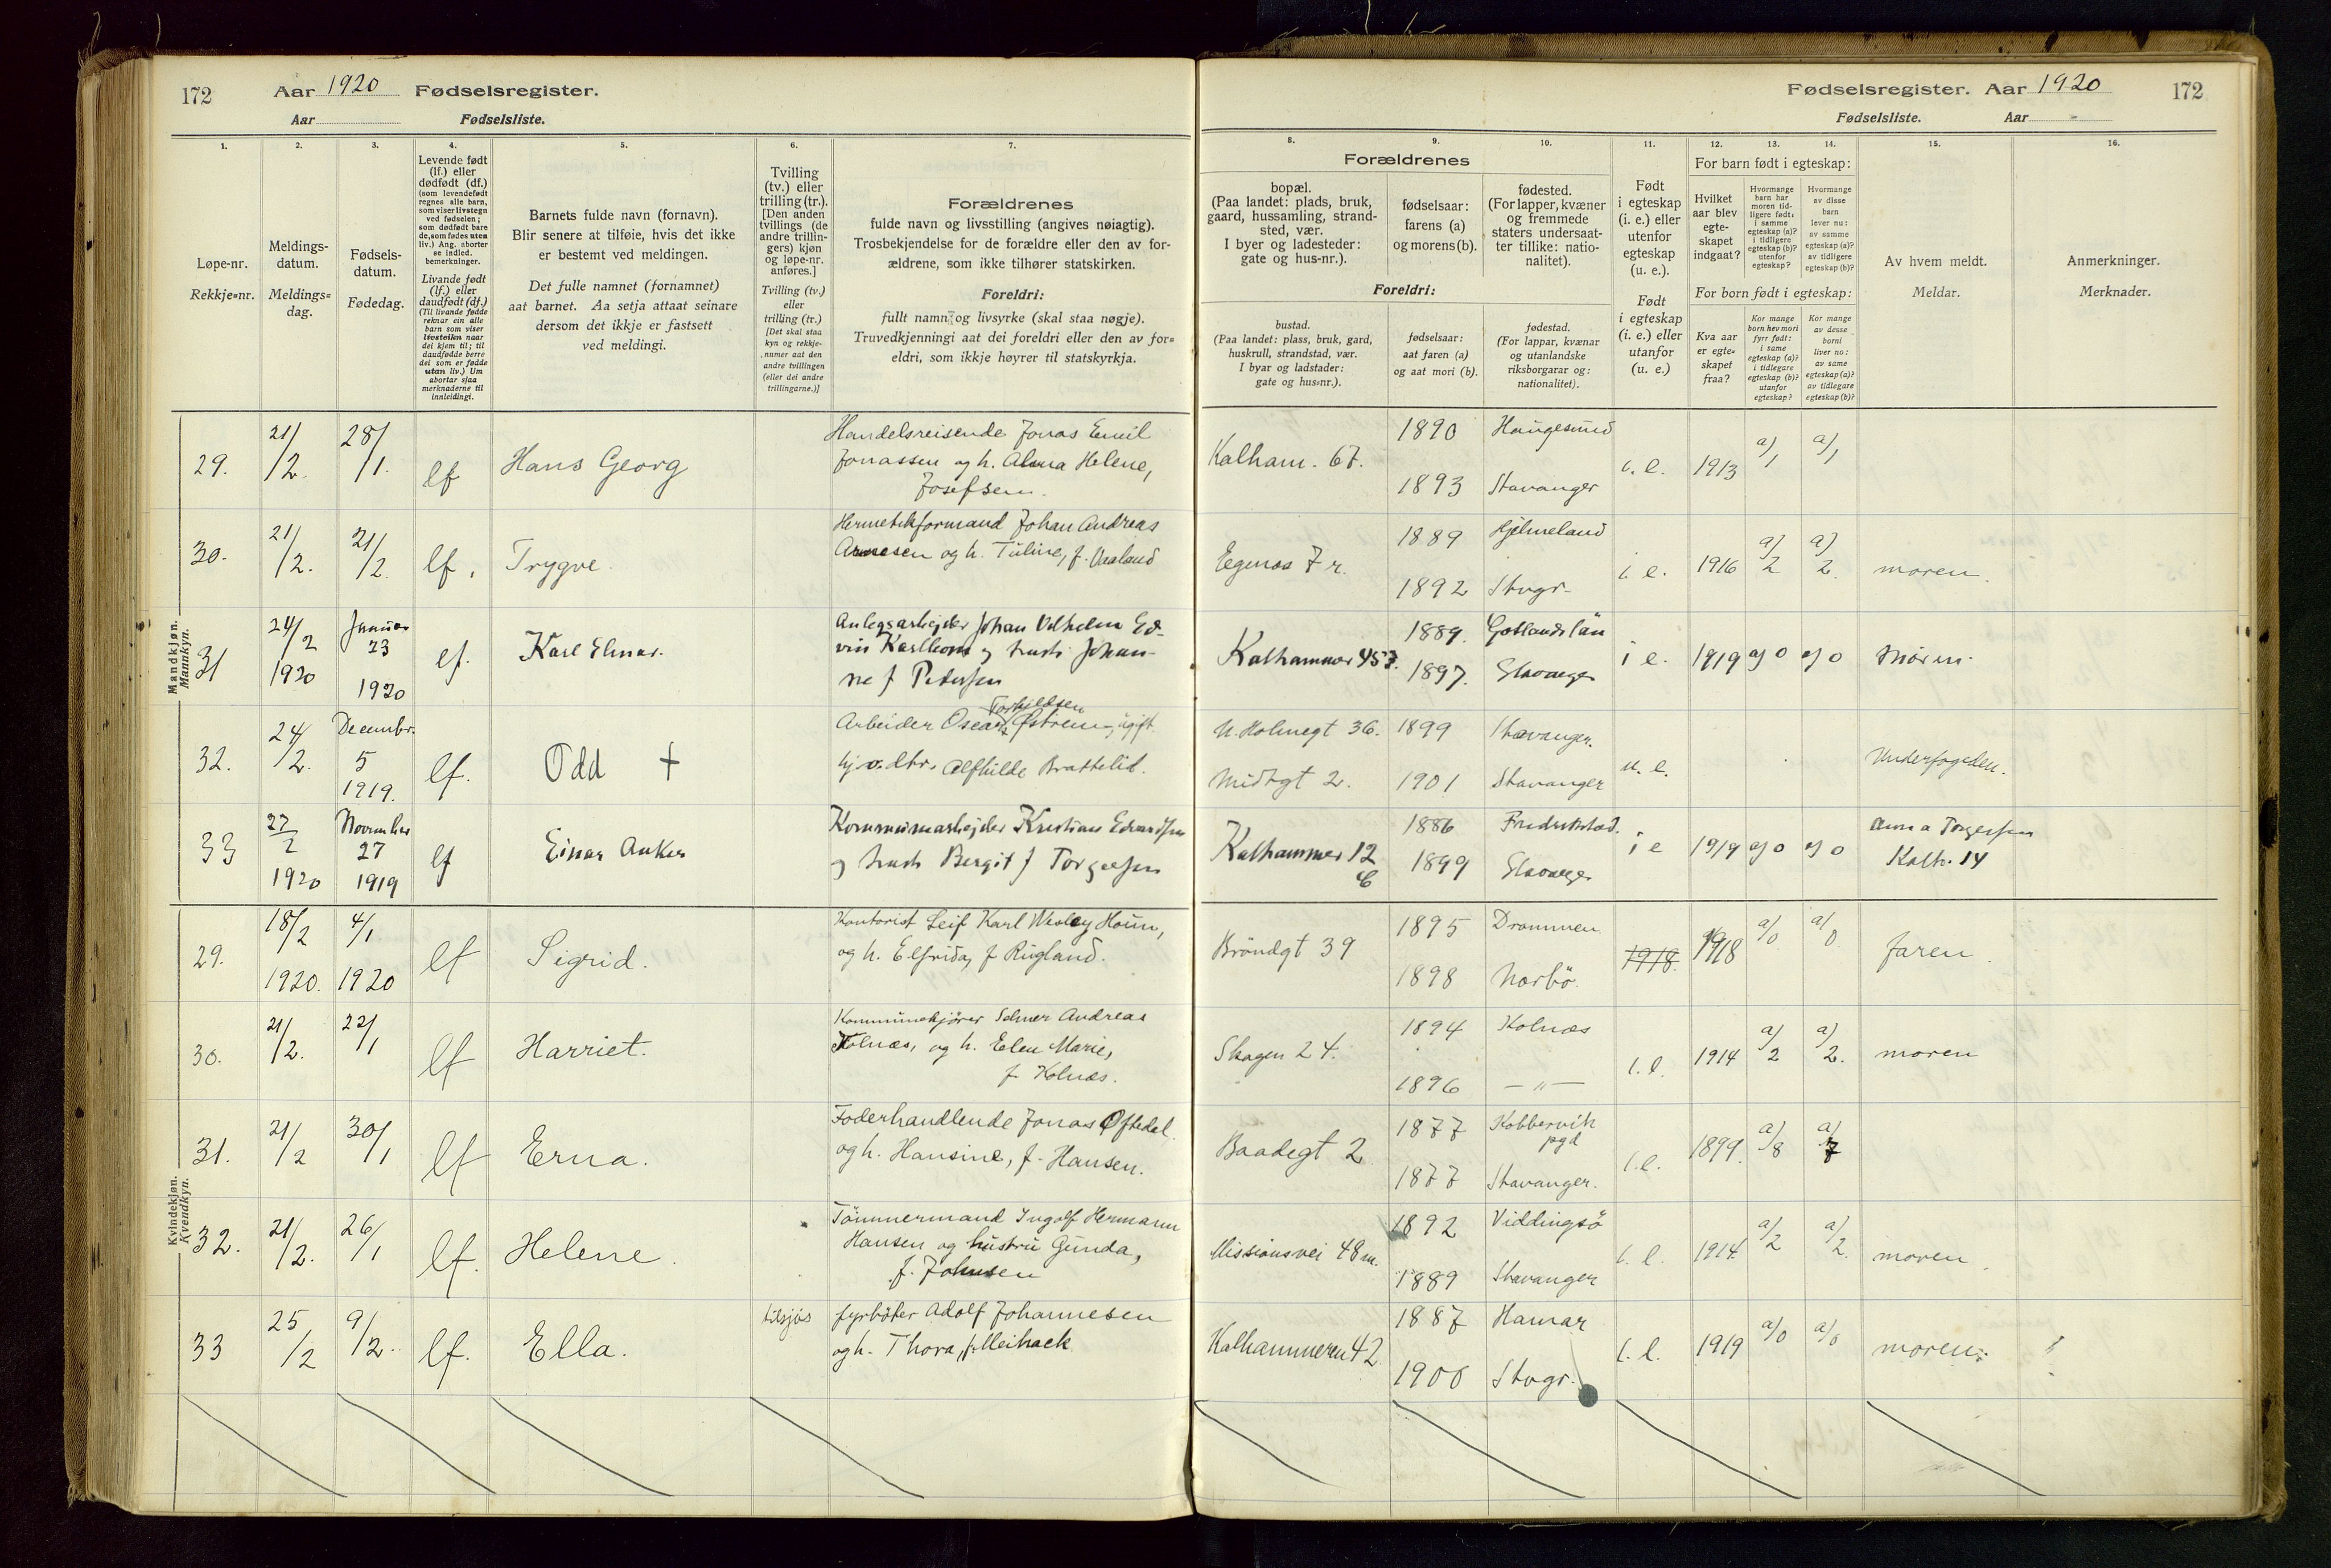 172 Aar 1920 Fødselsregister.
Aar Fødselsliste.
Fødselsregister. Aar 1920 172
Fødselsliste. Aar
1. 2. 3. 4. 5. 6. 7.
Løpe-nr.
Rekkje=nr.
Meldings-
datum.
Meldings=
dag.
Fødsels-
datum.
Fødedag.
Levende født
(lf.) eller
dødfødt (df.)
(som levendefødt
regnes alle barn,
som viser livstegn
ved fødselen;
som dødfødt bare
de, som fødes uten
liv.) Ang. aborter
se indled.
bemerkninger.
Livande født
(lf.) eller
daudfødt (df.)
(Til livande fødde
reknar ein alle
barn som viser
livsteikn naar
dei kjem til; til
daudfødde berre
dei som er fødde
utan liv.) Um
abortar sjaa
merknaderne til
innleidingi.
Barnets fulde navn (fornavn).
Blir senere at tilføie, hvis det ikke
er bestemt ved meldingen.
Det fulle namnet (fornamnet)
aat barnet. Aa setja attaat seinare
dersom det ikkje er fastsett
ved meldingi.
Tvilling
(tv.) eller
trilling (tr.).
[Den anden
tvillings (de
andre trillin-
gers) kjøn
og løpe-nr.
anføres.]
Tvilling (tv.)
eller
trilling (tr.)
[Det skal staa
kyn og rekkje-
numer aat den
andre tvillingen
(eller dei andre
trillingarne.)]
Forældrenes
fulde navn og livsstilling (angives nøiagtig).
Trosbekjendelse for de forældre eller den av for-
ældrene, som ikke tilhører statskirken.
Foreldri:
fullt namn og livsyrke (skal staa nøgje).
Truvedkjenningi aat dei foreldri eller den av for=
eldri, som ikkje høyrer til statskyrkja.
8. 9. 10. 11. 12. 13. 14. 15. 16.
Forældrenes
bopæl.
(Paa landet: plads, bruk,
gaard, hussamling, strand-
sted, vær.
I byer og ladesteder:
gate og hus-nr.).
fødselsaar:
farens (a)
og morens (b).
fødested.
(For lapper, kvæner
og fremmede
staters undersaat-
ter tillike: natio-
nalitet).
Foreldri:
bustad.
(Paa landet: plass, bruk, gard,
huskrull, strandstad, vær.
I byar og ladstader:
gate og hus=nr.).
fødselsaar:
aat faren (a)
og aat mori (b).
fødestad.
(For lappar, kvænar
og utanlandske
riksborgarar og:
nationalitet).
Født
i egteskap
(i. e.) eller
utenfor
egteskap
(u. e.).
Født
i egteskap
(i. e.) eller
utanfor
egteskap
(u. e.)
For barn født i egteskap:
Hvilket
aar blev
egte-
skapet
indgaat?
Hvormange
barn har
moren tid-
ligere født:
i samme
egteskap (a)?
i tidligere
egteskap (b)?
utenfor
egteskap?
Hvormange
av disse
barn
lever nu:
av samme
egteskap (a)?
av tidligere
egteskap (b)?
For born født i egteskap:
Kva aar
er egte=
skapet
fraa?
Kor mange
born hev mori
fyrr født:
i same
egteskap (a)?
i tidlegare
egteskap (b)?
utanfor
egteskap?
Kor mange
av desse
borni
liver no:
av same
egteskap (a)?
av tidlegare
egteskap (b)?
Av hvem meldt.
Meldar.
Anmerkninger.
Merknader.
Mandkjøn.
Mannkyn.
29. 21/2. 28/1. lf Hans Georg
Handelsreisende Jonas Emil
Jonassen og h. Alma Helene,
Josefsen.
Kalham. 67. 1890 Haugesund
1893 Stavanger
i. e. 1913 a/1 a/1
30. 21/2. 21/2. lf. Trygve.
Hermetikformand Johan Andreas
Arnesen og h. Tuline, f. Vaaland
Egenes 7 r. 1889 Hjelmeland
1892 Stvgr.
i. e. 1916 a/2 a/2. moren.
31 24/2 1920 Januar 23 1920 lf. Karl Elmar.
Anlegsarbejder Johan Vilhelm Ed-
vin Karlson og hustr. Johan-
ne f Petersen
Kalhammer 457. 1889. Gotlands län
1897. Stavanger
i e. 1919 a) 0 a) 0 Moren.
32. 24/2. Decembr. 5 1919. lf. Odd +
Torkildsen
Arbeider Oscar Østrem, ugift
hj. o. dtr. Alfhilde Brattelid.
N. Holmegt 36. 1899 Stavanger.
Midtgt 2. 1901 Stavanger
u. e. Underfogden.
33 27/2 1920 November 27 1919 lf Einar Anker
Kommunearbejder Kristian Edvardsen
og hustr Bergit f Torgersen
Kalhammer 12 1886 Fredrikstad.
1899 Stavanger
i e 1919 a) 0 a) 0 Anna Torgersen
Kalh. 14
Kvindekjøn.
Kvendkyn.
29. 18/2 1920. 4/1 1920 lf Sigrid.
Kontorist Leif Karl Wesley Houm,
og h. Elfrida, f Rugland.
Brøndgt 39 1895 Drammen.
1898 Nærbø.
1918. 1918 a/0 a/0. faren.
30. 21/2. 22/1 lf Harriet.
Kommunekjører Selmer Andreas
Kolnæs, og h. Elen Marie,
f. Kolnæs.
Skagen 24. 1894 Kolnæs
1896 — " —
i. e. 1914 a/2 a/2. moren
31. 21/2 30/1 lf Erna.
Foderhandlende Jonas Oftedal
og h. Hansine, f. Hansen.
Baadegt 2 1877 Kobbervik
pgd
1877 Stavanger.
i. e. 1899. a/8 a/7
32. 21/2. 26/1 lf. Helene.
Tømmermand Ingolf Hermann
Hansen og hustru Gunda,
f. Johnsen
Missionsvei 48m. 1892 Viddingsø
1889 Stavanger
i. e. 1914 a/2 a/2. moren.
33 25/2 9/2. lf. Ella. tilsjøs
fyrbøter Adolf Johannesen
og h. Thora, f. Meihack
Kalhammeren 42. 1887 Hamar
1900 Stvgr.
i. e. 1919 a/0 a/0 moren.